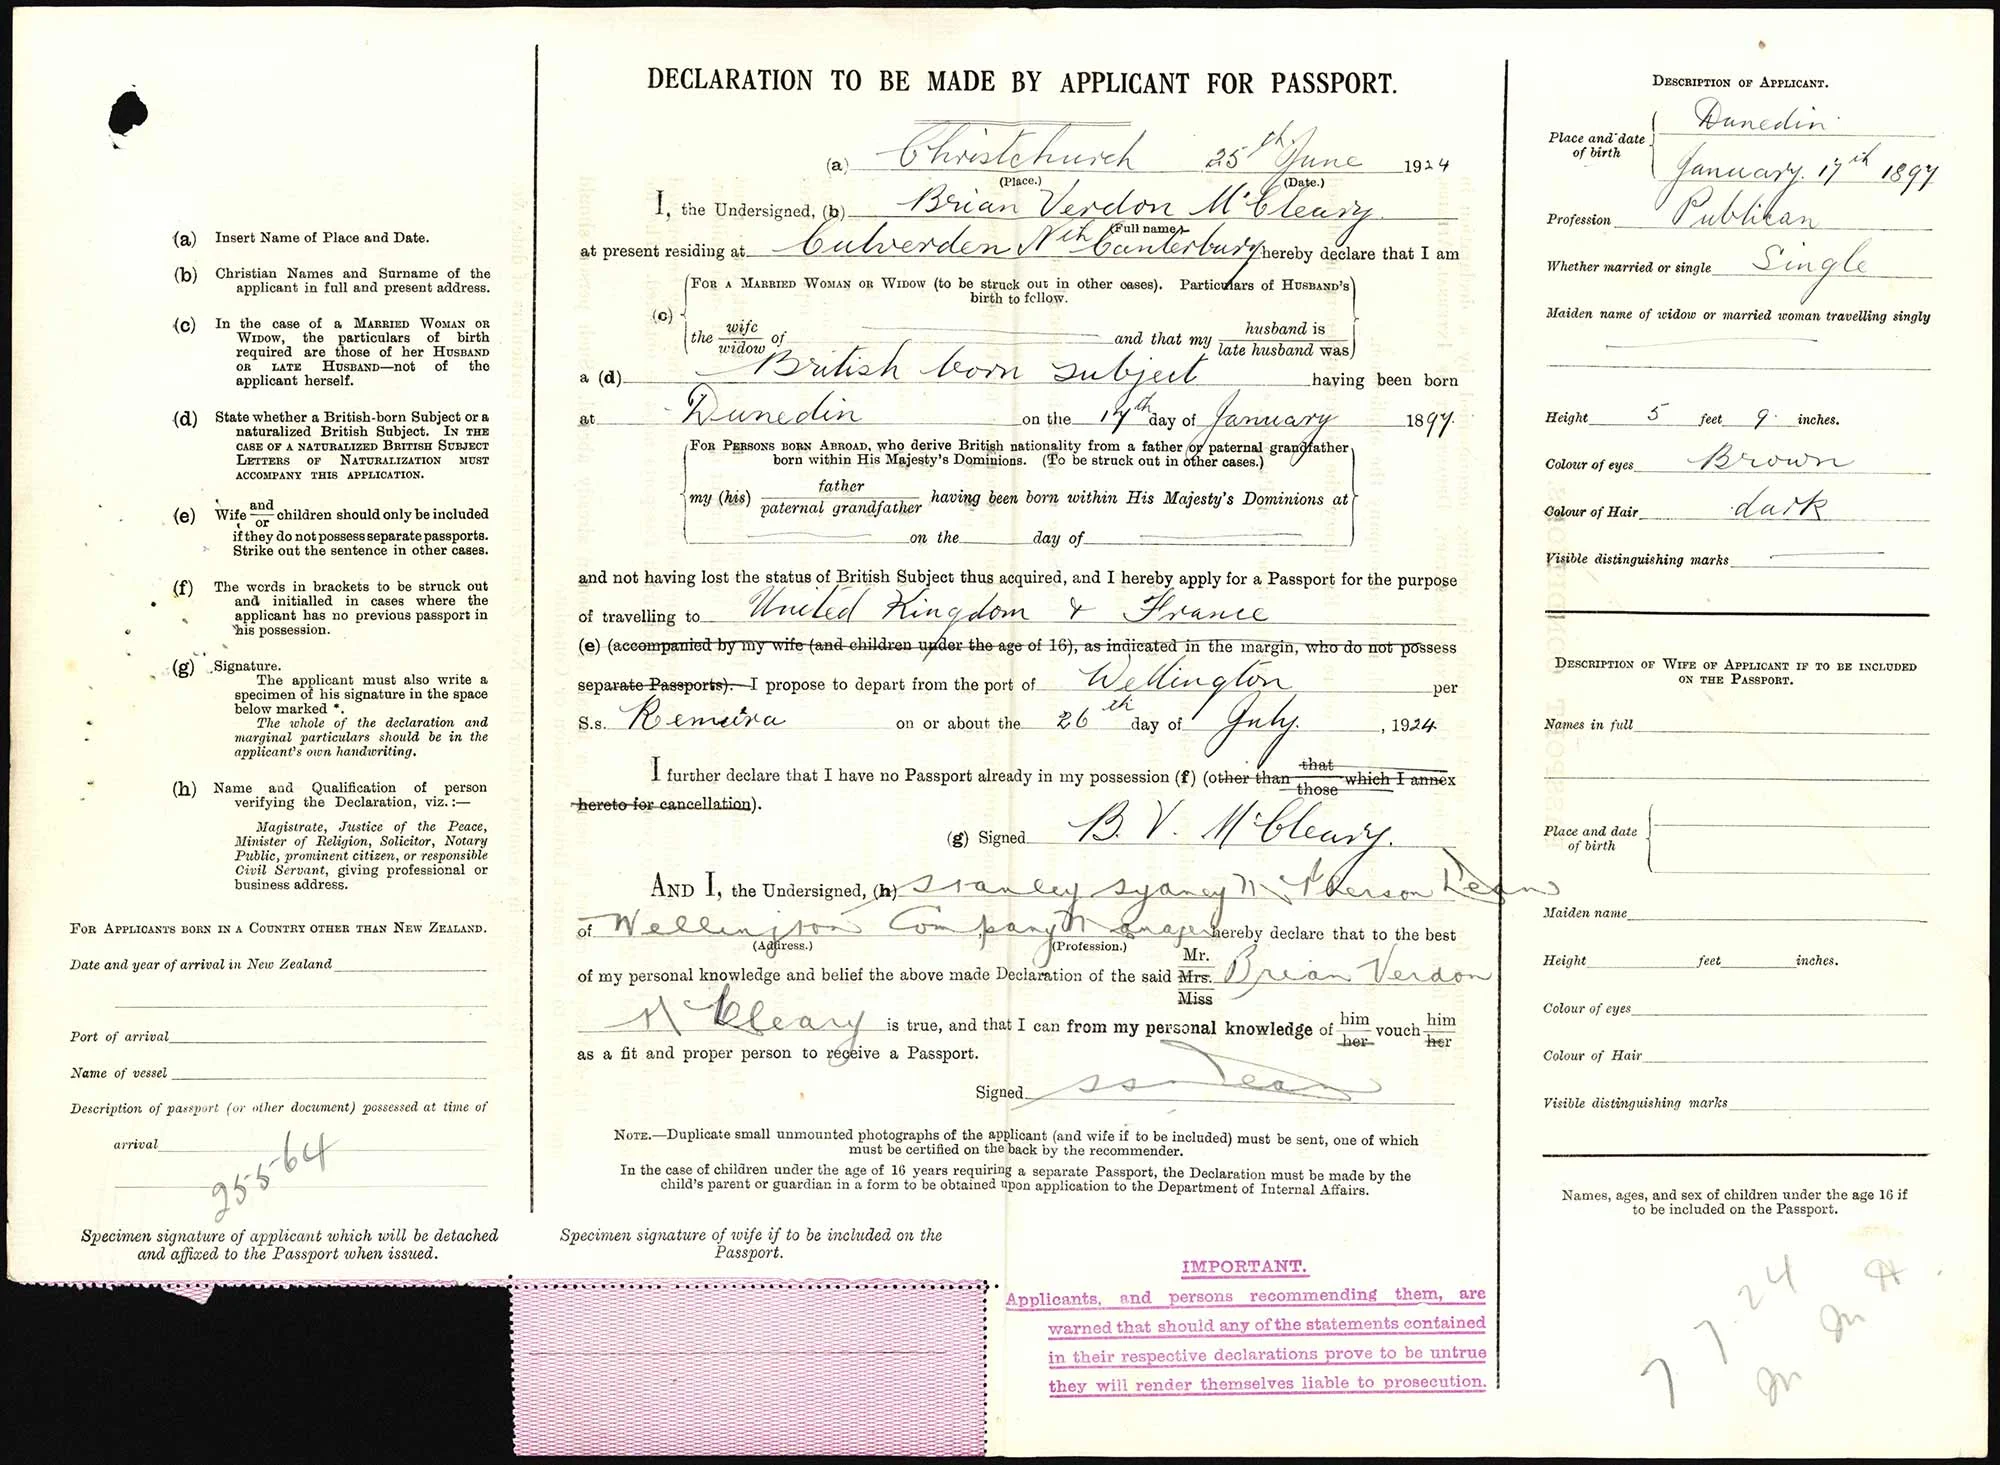 (a) Insert Name of Place and Date.
(b) Christian Names and Surname of the
applicant in full and present address.
(c) In the case of a MARRIED WOMAN OR
WIDOW, the particulars of birth
required are those of her HUSBAND
OR LATE HUSBAND—not of the
applicant herself.
(d) State whether a British-born Subject or a
naturalized British Subject. IN THE
CASE OF A NATURALIZED BRITISH SUBJECT
LETTERS OF NATURALIZATION MUST
ACCOMPANY THIS APPLICATION.
(e) Wife and/or children should only be included
if they do not possess separate passports.
Strike out the sentence in other cases.
(f) The words in brackets to be struck out
and initialled in cases where the
applicant has no previous passport in
his possession.
(g) Signature.
The applicant must also write a
specimen of his signature in the space
below marked *.
The whole of the declaration and
marginal particulars should be in the
applicant's own handwriting.
(h) Name and Qualification of person
verifying the Declaration, viz.:—
Magistrate, Justice of the Peace,
Minister of Religion, Solicitor, Notary
Public, prominent citizen, or responsible
Civil Servant, giving professional or
business address.
FOR APPLICANTS BORN IN A COUNTRY OTHER THAN NEW ZEALAND.
Date and year of arrival in New Zealand
Port of arrival
Name of vessel
Description of passport (or other document) possessed at time of
arrival
25564
Specimen signature of applicant which will be detached
and affixed to the Passport when issued.
DECLARATION TO BE MADE BY APPLICANT FOR PASSPORT.
(a) Christchurch 25th June 1924
(Place.) (Date.)
I, the Undersigned, (b) Brian Verdon McCleary
(Full name)
at present residing at Culverden Nth Canterbury hereby declare that I am
(c) FOR A MARRIED WOMAN OR WIDOW (to be struck out in other cases). Particulars of HUSBAND'S
birth to follow.
the wife/widow of and that my husband is/late husband was
a (d) British born subject having been born
at Dunedin on the 17th day of January 1897.
FOR PERSONS BORN ABROAD, who derive British nationality from a father or paternal grandfather
born within His Majesty's Dominions. (To be struck out in other cases.)
my (his) father/paternal grandfather having been born within His Majesty's Dominions at
on the day of
and not having lost the status of British Subject thus acquired, and I hereby apply for a Passport for the purpose
of travelling to United Kingdom & France
(e) (accompanied by my wife (and children under the age of 16), as indicated in the margin, who do not possess
separate Passports). I propose to depart from the port of Wellington per
S.s. Remuera on or about the 26th day of July. , 1924.
I further declare that I have no Passport already in my possession (f) (other than that/those which I annex
hereto for cancellation).
(g) Signed B. V. McCleary.
AND I, the Undersigned, (h) Stanley Sydney McPherson Dean
of Wellington Company Manager hereby declare that to the best
(Address.) (Profession.)
of my personal knowledge and belief the above made Declaration of the said Mr./Mrs./Miss Brian Verdon
McCleary is true, and that I can from my personal knowledge of him/her vouch him/her
as a fit and proper person to receive a Passport.
Signed SS Dean
NOTE.—Duplicate small unmounted photographs of the applicant (and wife if to be included) must be sent, one of which
must be certified on the back by the recommender.
In the case of children under the age of 16 years requiring a separate Passport, the Declaration must be made by the
child's parent or guardian in a form to be obtained upon application to the Department of Internal Affairs.
Specimen signature of wife if to be included on the
Passport.
IMPORTANT.
Applicants, and persons recommending them, are
warned that should any of the statements contained
in their respective declarations prove to be untrue
they will render themselves liable to prosecution.
DESCRIPTION OF APPLICANT.
Place and date
of birth
Dunedin
January. 17th 1897
Profession Publican
Whether married or single Single
Maiden name of widow or married woman travelling singly
Height 5 feet 9. inches.
Colour of eyes Brown
Colour of Hair dark
Visible distinguishing marks
DESCRIPTION OF WIFE OF APPLICANT IF TO BE INCLUDED
ON THE PASSPORT.
Names in full
Place and date
of birth
Maiden name
Height feet inches.
Colour of eyes
Colour of Hair
Visible distinguishing marks
Names, ages, and sex of children under the age 16 if
to be included on the Passport.
7 7 24